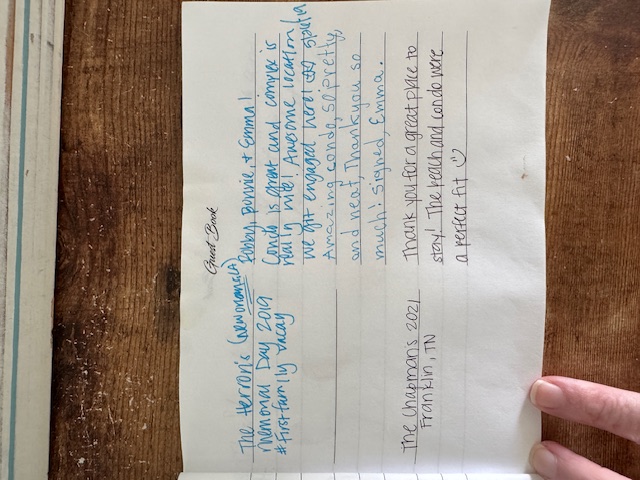 Guest Book
The Herron's
Memorial Day 2019
#Firstfamily vacay
Bobby, Bonnie, + Emma!
Condo is great and complex is
really nice! Awesome location!
We got engaged here!
Amazing condo, so pretty,
and neat, Thank you so
much! Signed, Emma.
The Chapmans 2021
Franklin, TN
Thank you for a great place to
stay! The beach and condo were
a perfect fit